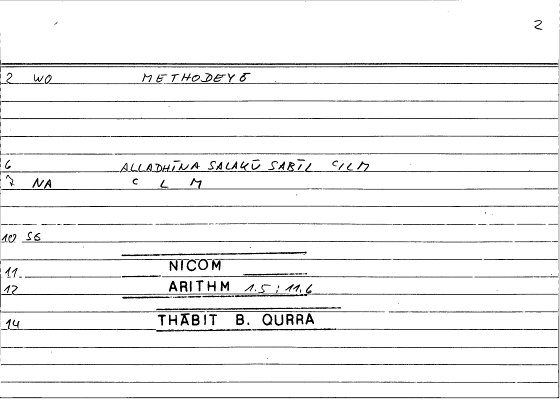 2
2 WO METHODEYŌ
6 ALLADHĪNA SALAKŪ SABĪL ᶜILM
7 NA ᶜ L M
10 SG
11 NICOM
12 ARITHM 1.5 ; 11.6
14 THĀBIT B. QURRA